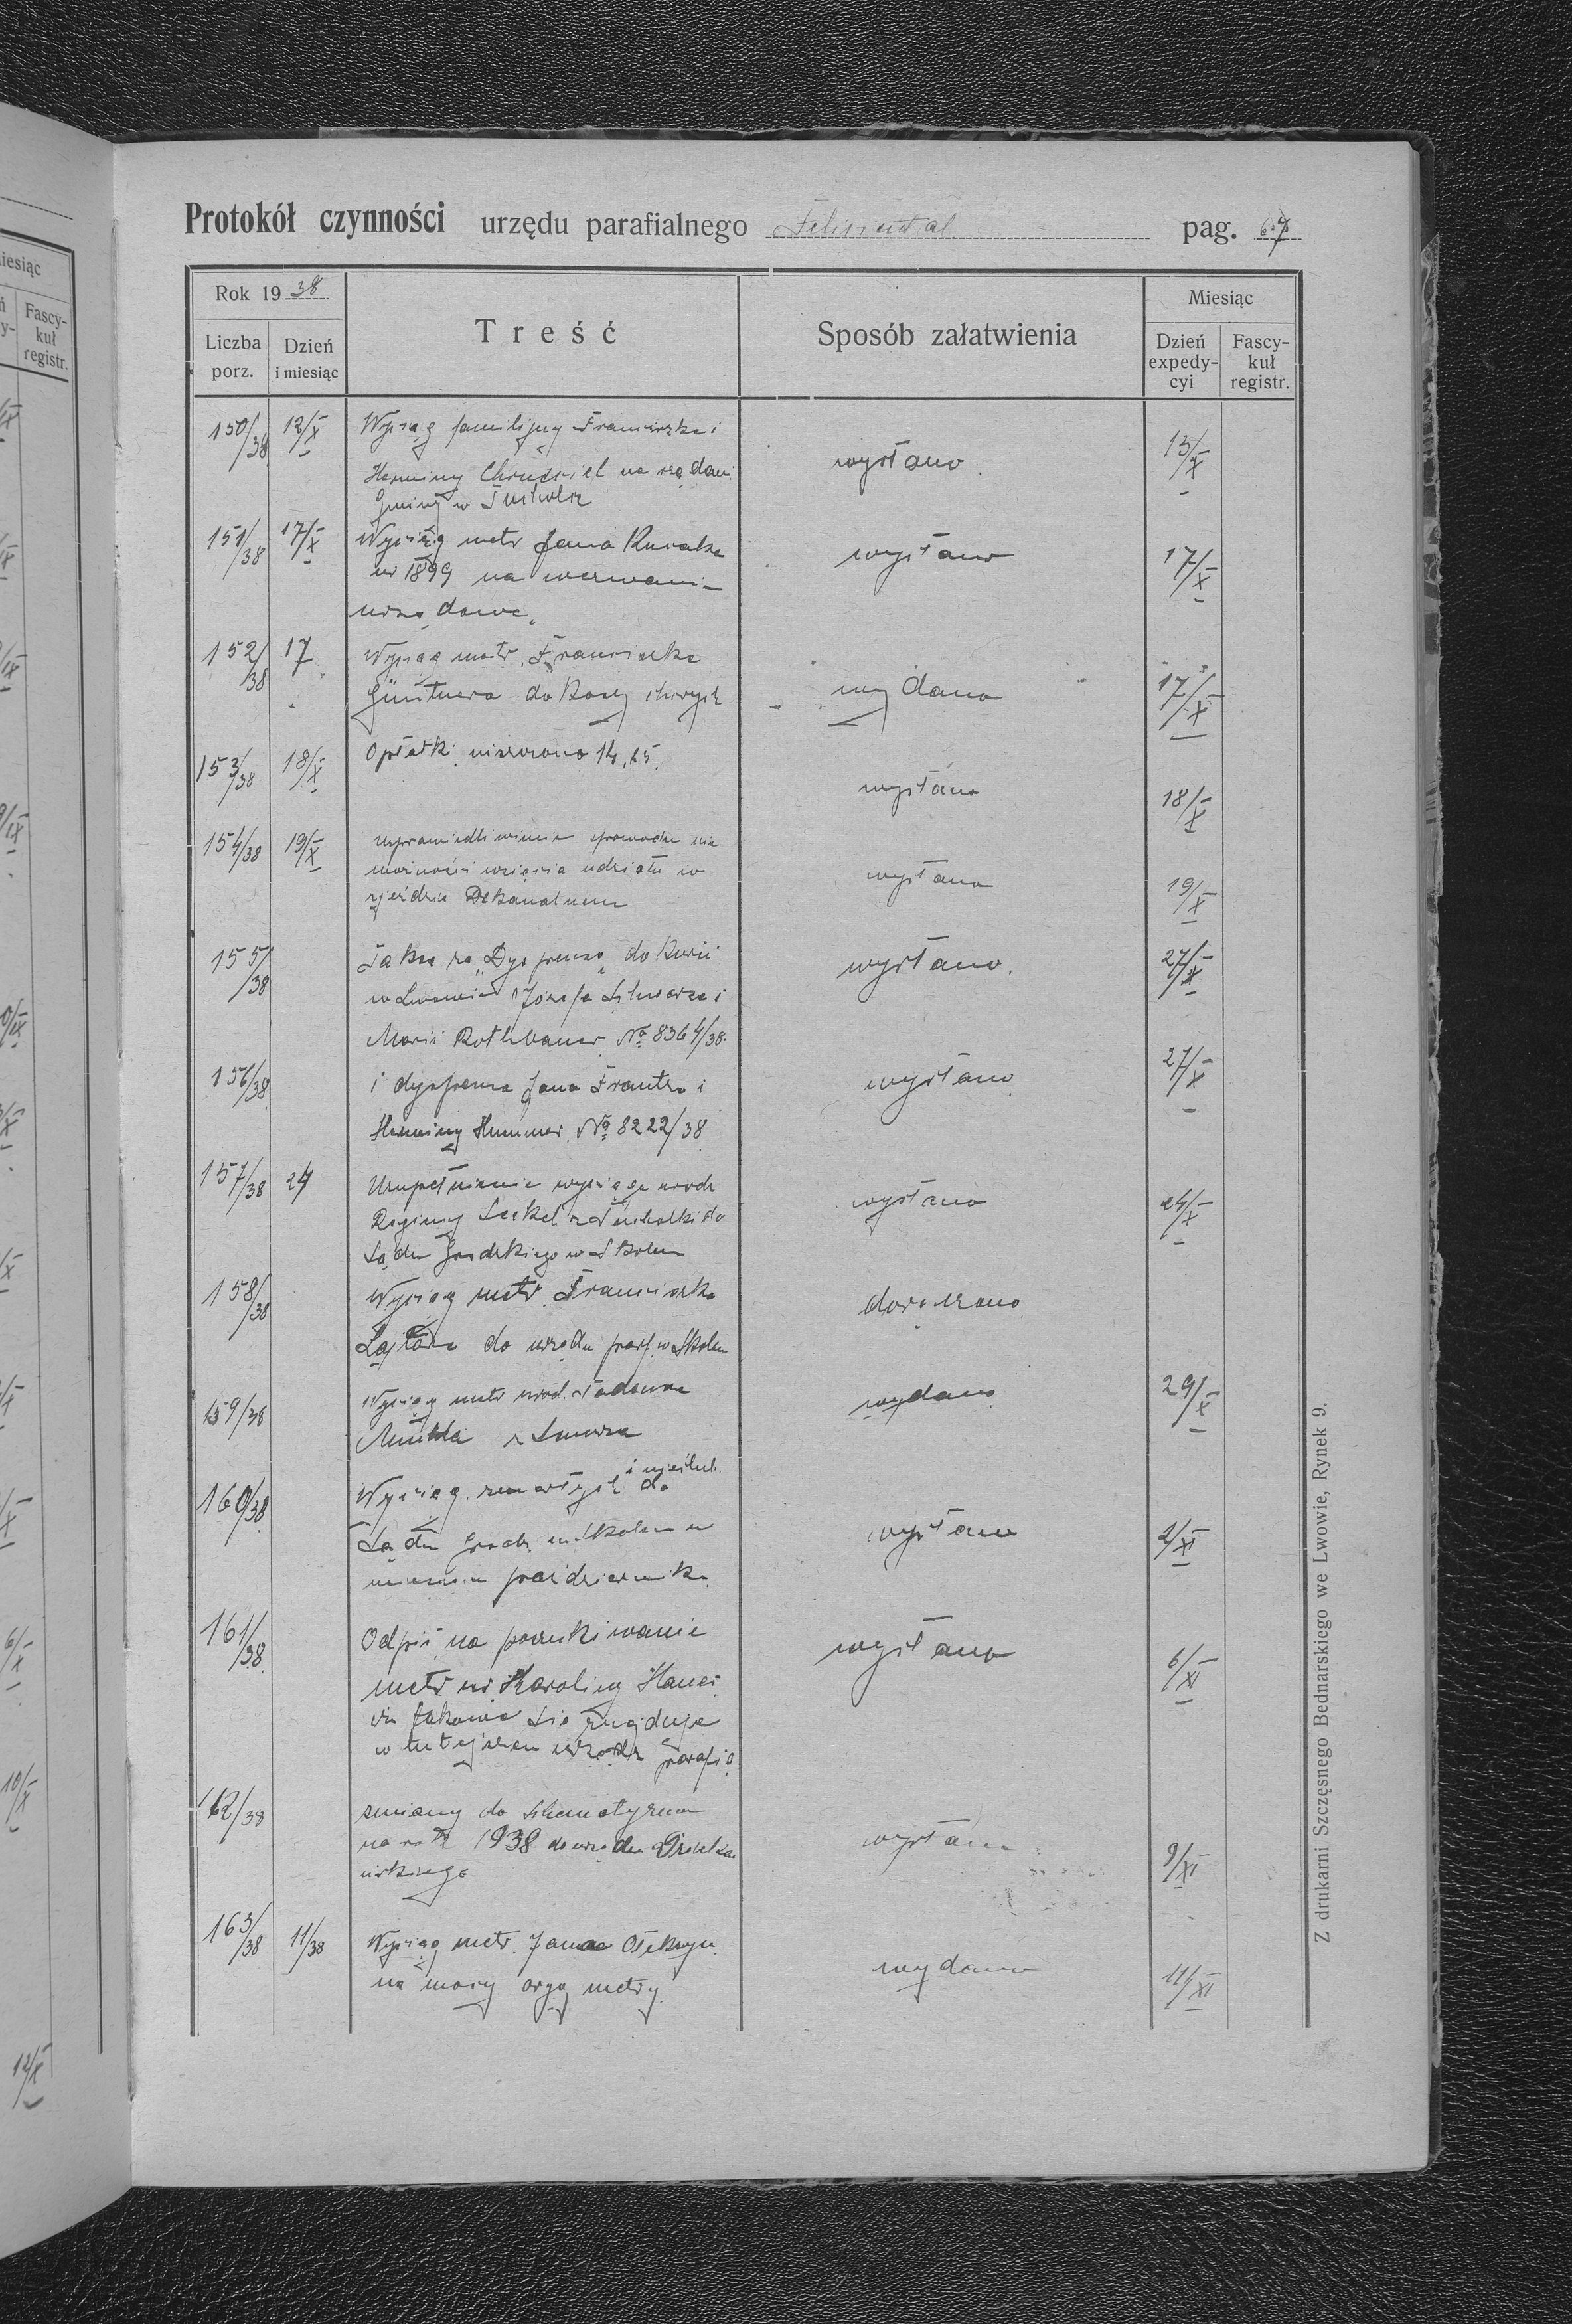 Protokół czynności urzędu parafialnego Felizienthal pag. 67
Rok 1938
Treść
Sposób załatwienia
Miesiąc
Liczba porz.
Dzień i miesiąc
Dzień expedy-cyi
Fascy-kuł registr.
150/38 12/X Wyciąg familijny Franciszka i
Herminy na
Gminy w wysłano 13/X
151/38 17/X Wyciąg metr Jana
ur 1899 na wezwanie
urzędowe wysłano 17/X
152/38 17 Wyciąg metr. Franciszka
Güntnera do Kasy chorych wydano 17/X
153/38 18/X Opłatki 14,25. wysłano 18/X
154/38 19/X usprawiedliwienie nie
możności wzięcia udziału w
zjeździe Dekanalnem wysłano 19/X
155/38 Taksa za "Dyspenzę" do Kurii
we Lwowie Józefa i
Marii Rothbauer No 8364/38. wysłano 27/X
156/38 i dyspenza Jana i
Herminy Hummer No 8222/38 wysłano 27/X
157/38 24 Uzupełnienie wyciągu urodz
Reginy z Tucholki do
Sądu Grodzkiego w Skolem wysłano 24/X
158/38 Wyciąg metr. Franciszka
do urzędu paraf. w Skolem doręczono
159/38 Wyciąg metr urod. Tadeusza
z wydano 29/X
160/38 Wyciąg zmarłych i nieślub. do
Sądu Grodz. w Skolem w
miesiącu październiku wysłano 2/XI
161/38 Odpis na poszukiwanie
metr ur. Karoliny
takowa się znajduje
w tutejszem urzędzie parafia wysłano 6/XI
162/38 zmiany do schematyzmu
na rok 1938 do urzędu Dzieka
ńskiego wysłano 9/XI
163/38 11/38 Wyciąg metr. Jana
na mocy oryg metry wydano 11/XI
Z drukarni Szczęsnego Bednarskiego we Lwowie, Rynek 9.
miesiąc
Fascy-
kuł
registr.